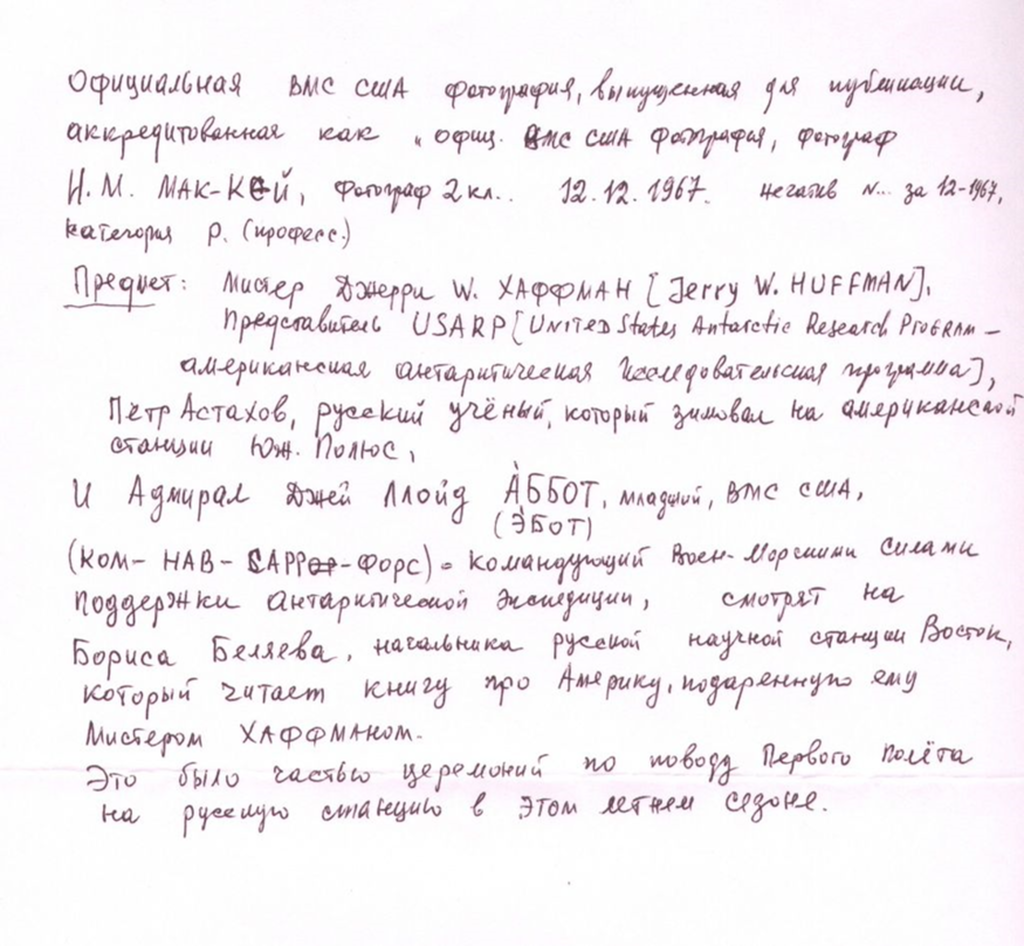 Официальная ВМС США фотография, выпущенная для публикации,
аккредитованная как „ офиц. ВМС США фотография, фотограф
Н. М. МАК-КЕЙ, фотограф 2 кл.. 12.12.1967. негатив N... за 12-1967,
категория р. (професс.)
Предмет: Мистер Джерри W. ХАФФМАН [Jerry W. HUFFMAN],
Представитель USARP [UNITED States Antarctic Research PROGRAM –
американская антарктическая исследовательская программа],
Пётр Астахов, русский учёный, который зимовал на американской
станции Юж. Полюс,
И Адмирал Джей Ллойд АББОТ, младший, ВМС США,
(ЭБОТ)
(КОМ- НАВ- САРР-ФОРС) - командующий Воен-Морскими Силами
поддержки антарктической экспедиции, смотрят на
Бориса Беляева, начальника русской научной станции Восток,
который читает книгу про Америку, подаренную ему
Мистером ХАФФМАНОМ.
Это было частью церемоний по поводу Первого полёта
на русскую станцию в этом летнем сезоне.